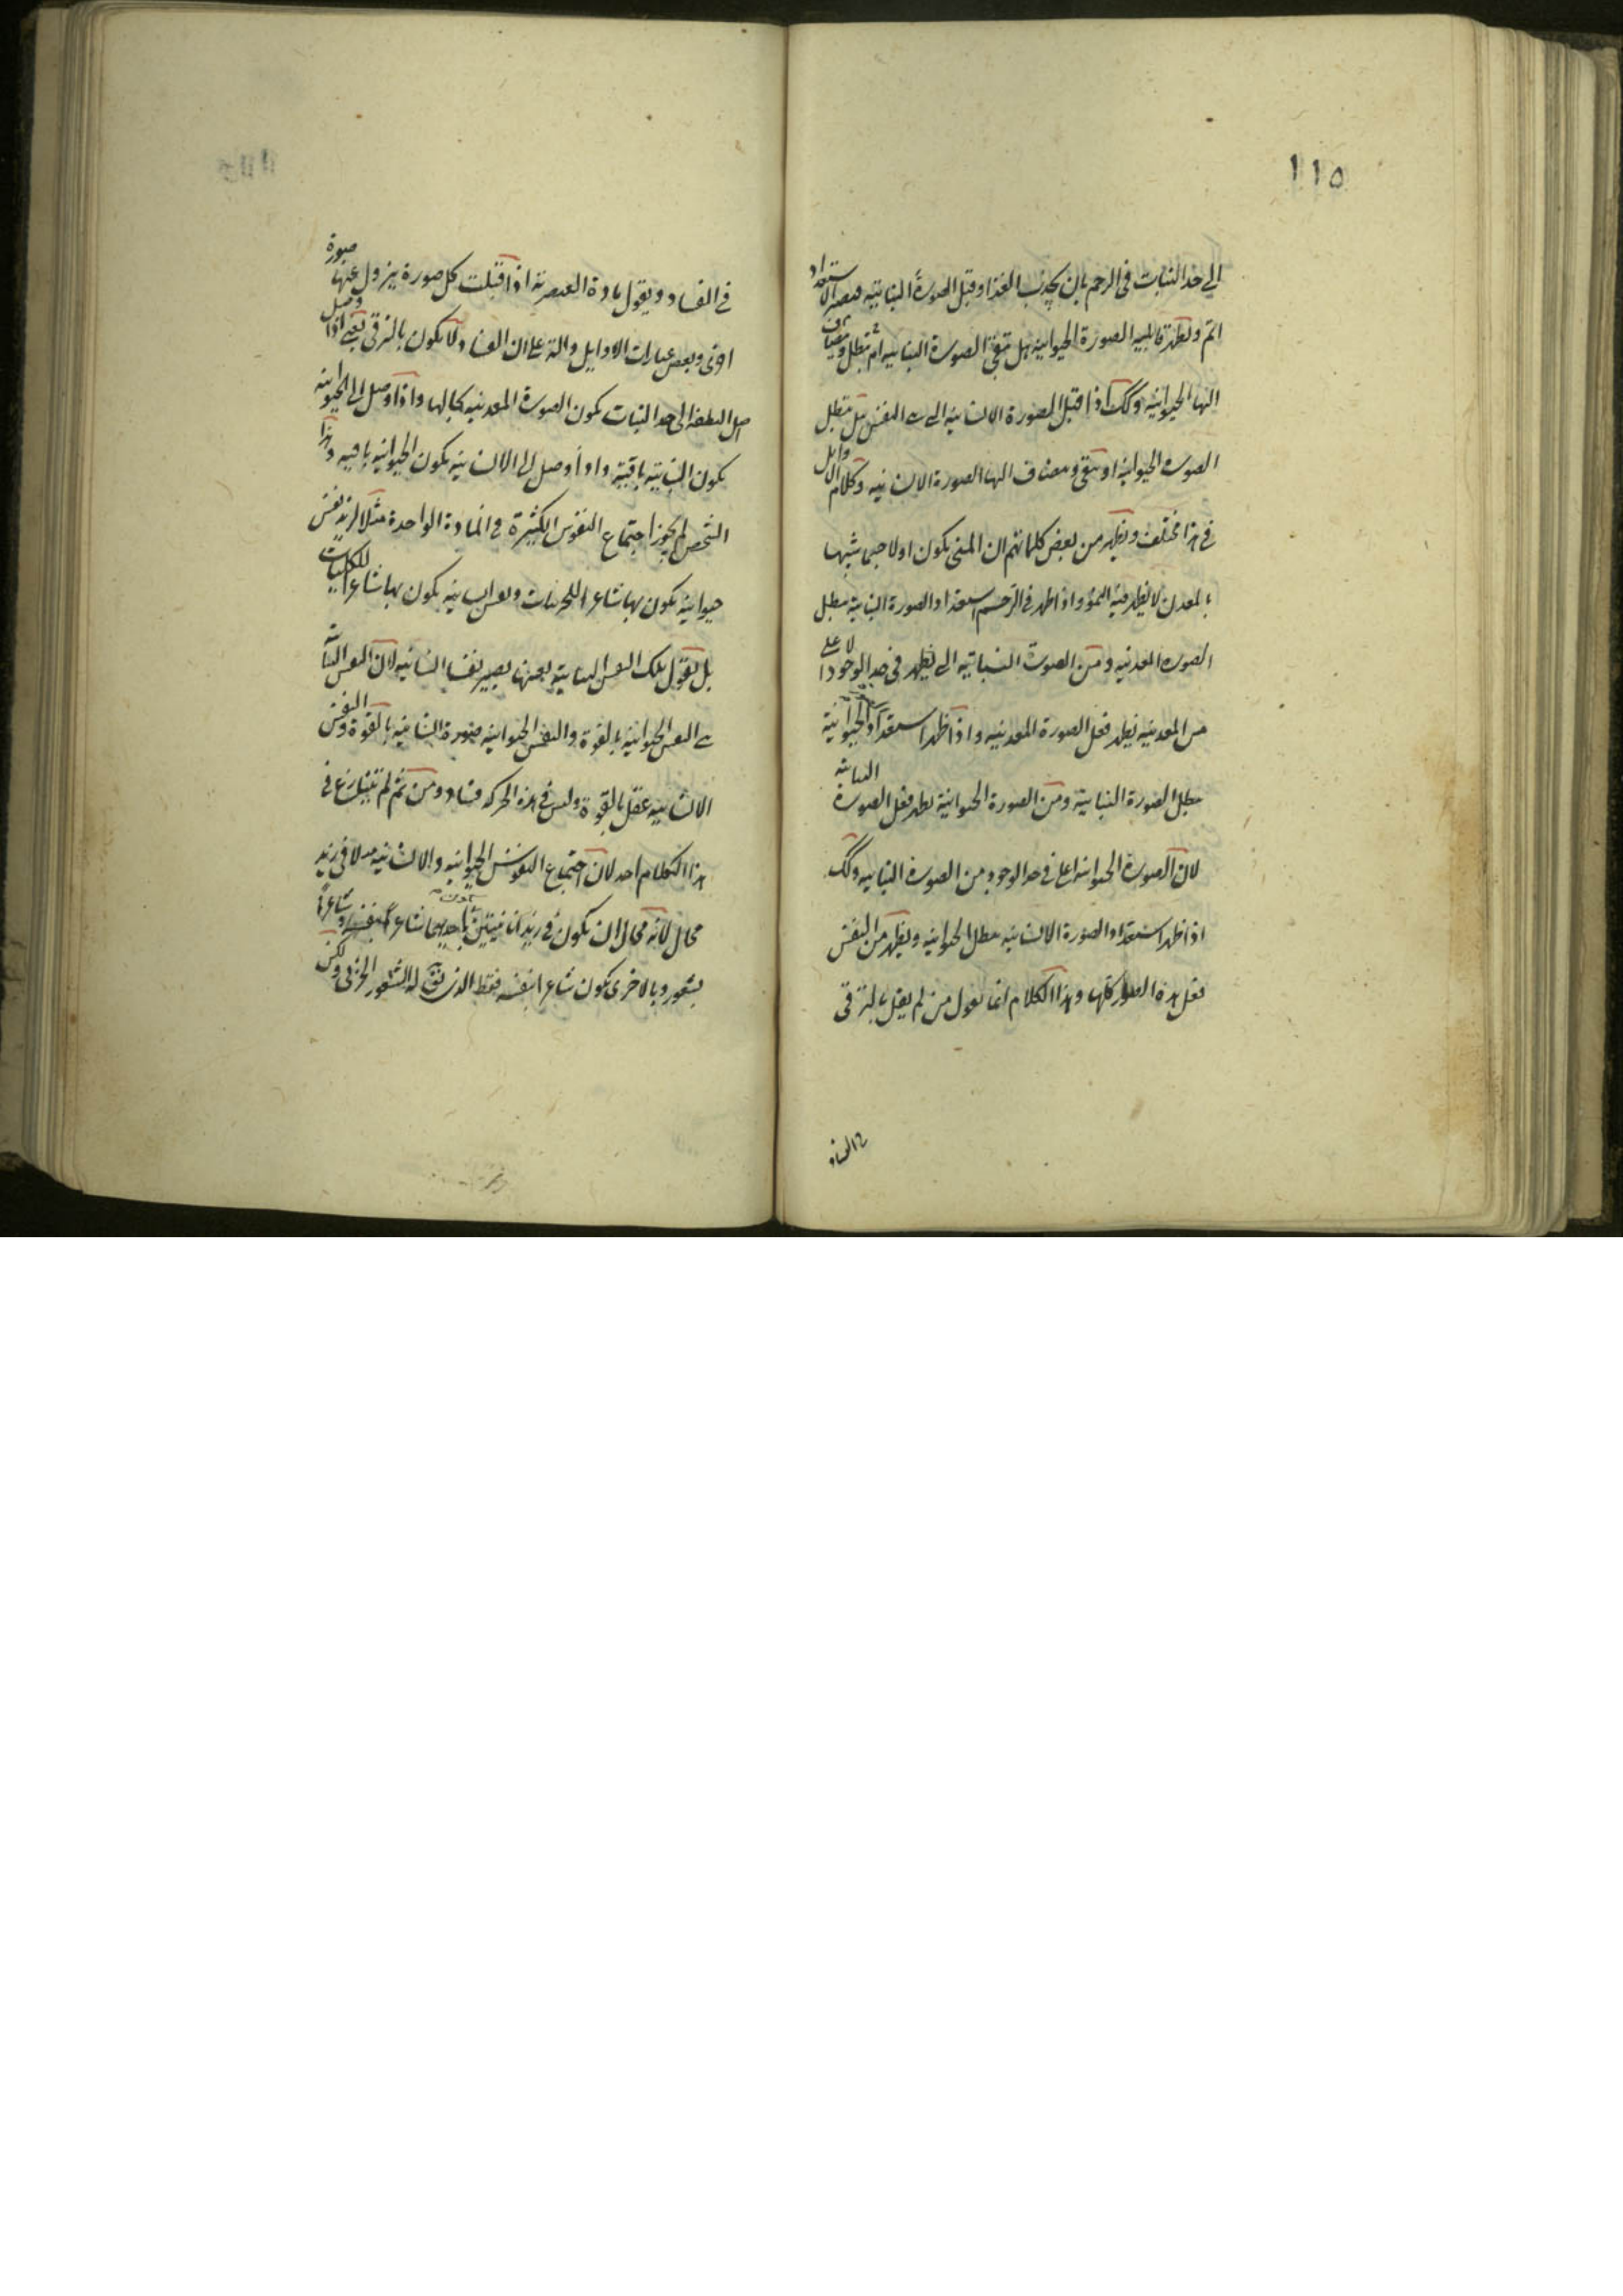 ١١٥
الى حد النبات فى الرحم بان يجذب الغذا وقبل الصورة النباتيه فيصير الاستعداد
اتم ويظهر قابليه الصورة الحيوانيه هل تبقى الصورة النباتيه ام تبطل ويضاف
اليها الحيوانيه وكك اذا قبل الصورة الانسانيه التى هى النفس هل تبطل
الصوره الحيوانيه او تبقى ويضاف اليها الصورة الانسانيه وكلام الاوايل
فى هذا مختلف ويظهر من بعض كلماتهم ان المنى يكون اولا جسما شبيها
بالمعدن لا يظهر فيه النمو واذا ظهر فى الرحم استعداد الصورة النباتية تبطل
الصوره المعدنيه ومن الصورة النباتيه التى يظهر فى حد الوجود اعلى
من المعدنيه يظهر فعل الصورة المعدنيه واذا ظهر استعداد الحيوانية
تبطل الصورة النباتية ومن الصورة الحيوانية يظهر فعل الصورة النباتيه
لان الصورة الحيوانيه اعلى فى حد الوجود من الصورة النباتيه وكك
اذا ظهر استعداد الصورة الانسانيه تبطل الحيوانيه ويظهر من النفس
فعل هذه الصور كلها وهذا الكلام انما يقول من لم يقل بالترقى
فى الفساد
فى الفساد ويقول مادة العنصرية اذا قبلت كل صورة يزول عنها صورة
اخرى وبعض عبارات الاوايل دالة على ان الفساد لا يكون بالترقى يعنى اذا وصل
اصل النطفة الى حد النبات يكون الصورة المعدنيه بحالها واذا وصل الى الحيوانيه
يكون النباتيه باقية واذا وصل الى الانسانيه يكون الحيوانيه باقيه وهذا
الشخص لم يجوز اجتماع النفوس الكثيرة فى المادة الواحدة مثلا لزيد نفس
حيوانية يكون بها شاعرا للجزئيات ونفس انسانيه يكون بها شاعرا للكليات
بل يقول تلك النفس النباتيه بعينها يصير نفسا انسانيه لان النفس النباتيه
هى النفس الحيوانيه بالقوة والنفس الحيوانيه صورة انسانيه بالقوة والنفس
الانسانيه عقل بالقوة وليس فى هذه الحركه فساد ومن ثم لم يتنازع فى
هذا الكلام احد لان اجتماع النفوس الحيوانيه والانسانيه مثلا فى زيد
محال لانه محال ان يكون فى زيد انانيتين باحديهما يكون شاعرا بنفسه وشاعرا
بشعوره وبالاخرى يكون شاعرا بنفسه فقط الذى له الشعور الجزئى ولكن